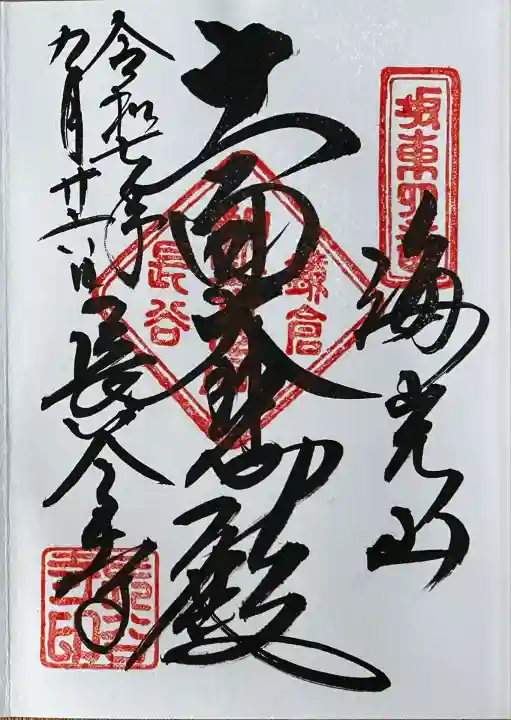 坂東四番
海光山
十一面大悲殿
鎌倉
長谷
令和七年
九月廿六日
長谷寺